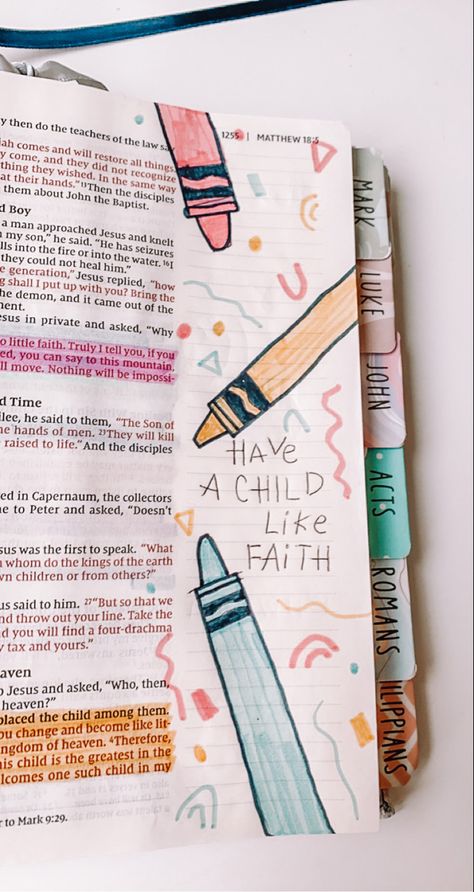 1255 | MATTHEW 18:5
y then do the teachers of the law say
jah comes and will restore all things.
y come, and they did not recognize
thing they wished. In the same way
at their hands." ¹³Then the disciples
them about John the Baptist.
d Boy
a man approached Jesus and knelt
n my son," he said. "He has seizures
lls into the fire or into the water. ¹⁶I
they could not heal him."
e generation," Jesus replied, "how
g shall I put up with you? Bring the
he demon, and it came out of the
ment.
esus in private and asked, "Why
o little faith. Truly I tell you, if you
ed, you can say to this mountain,
ll move. Nothing will be impossi-
d Time
ilee, he said to them, "The Son of
he hands of men. ²³They will kill
raised to life." And the disciples
ed in Capernaum, the collectors
me to Peter and asked, "Doesn't
sus was the first to speak. "What
whom do the kings of the earth
wn children or from others?"
us said to him. ²⁷"But so that we
nd throw out your line. Take the
d you will find a four-drachma
y tax and yours."
eaven
o Jesus and asked, "Who, then,
heaven?"
placed the child among them.
ou change and become like lit-
ngdom of heaven. ⁴Therefore,
his child is the greatest in the
lcomes one such child in my
r to Mark 9:29.
HAVE
A CHILD
LIKE
FAITH
MARK
LUKE
JOHN
ACTS
ROMANS
ILIPPIANS